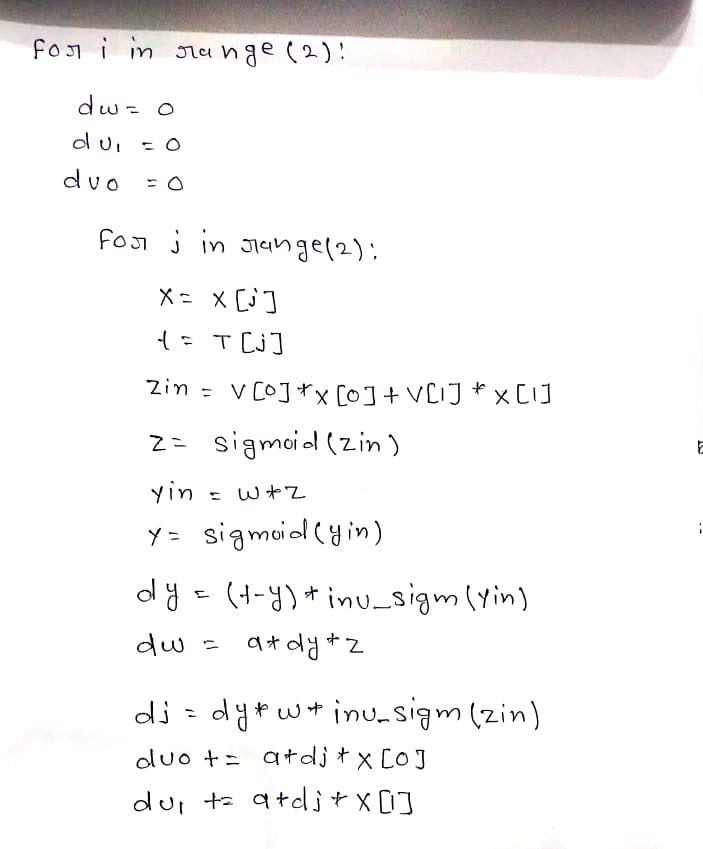 for i in range(2):
dw = 0
dv1 = 0
dv0 = 0
for j in range(2):
x = X[j]
t = T[j]
zin = V[0]*x[0]+V[1]*x[1]
z = sigmoid(zin)
yin = w*z
y = sigmoid(yin)
dy = (t-y)*inv_sigm(yin)
dw = a*dy*z
dj = dy*w*inv_sigm(zin)
dv0 += a*dj*x[0]
dv1 += a*dj*x[1]